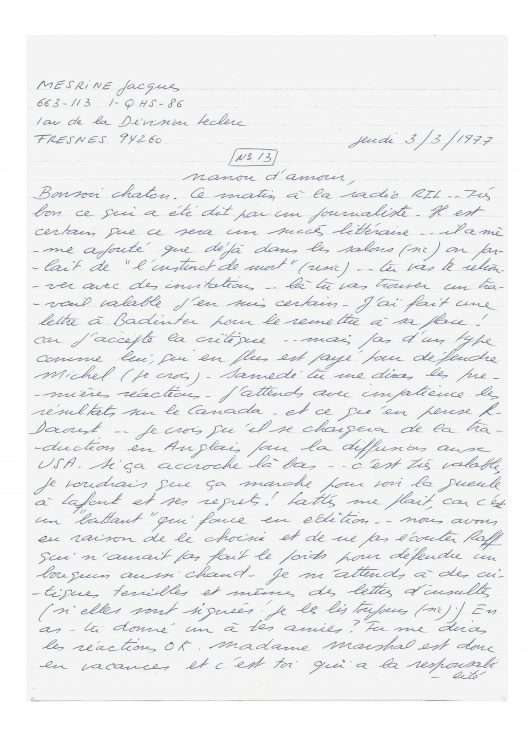 MESRINE Jacques
663-113 1-QHS-86
1 av de la Division Leclerc
FRESNES 94260
jeudi 3/3/1977
N° 13
nanou d'amour,
Bonsoir chaton. Ce matin à la radio RTL.. Très
bon ce qui a été dit par un journaliste - Il est
certain que ce sera un succès littéraire -- il a mê
-me ajouté que déjà dans les salons (sic) on par
-lait de "l'instinct de mort" -- tu vas te retrou
-ver avec des invitations -- là tu vas trouver un tra-
-vail valable j'en suis certain - J'ai fait une
lettre à Badinter pour le remettre à sa place !
car j'accepte la critique -- mais pas d'un type
comme lui, qui en plus est payé pour défendre
Michel (je crois) - Samedi tu me diras les pre-
-mières réactions - j'attends avec impatience les
résultats sur le Canada - et ce qu'en pense R
Daoust -- je crois qu'il se chargera de la tra-
-duction en Anglais pour la diffusion aux
USA. si ça accroche là bas -- c'est très valable,
je voudrais que ça marche pour voir la gueule
à Lafont et ses regrets ! Lattès me plait, car c'est
un "battant" qui fonce en édition -- nous avons
eu raison de le choisir et de ne pas écouter
qui n'aurait pas fait le poids pour défendre un
bouquin aussi chaud - Je m'attends à des cri-
-tiques terribles et mêmes des lettres d'insultes
(si elles sont signées je les lis toujours (sic)) En
as - tu donné un à tes amies ? Tu me diras
les réactions OK. madame Marshal est donc
en vacances et c'est toi qui a la responsabi
- lité